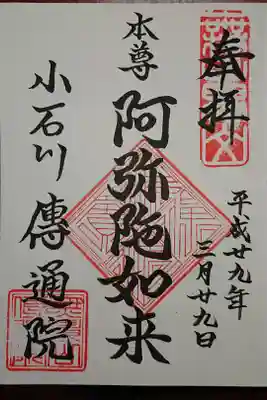 奉拝
平成廿九年
三月廿九日
本尊
阿弥陀如来
小石川傳通院